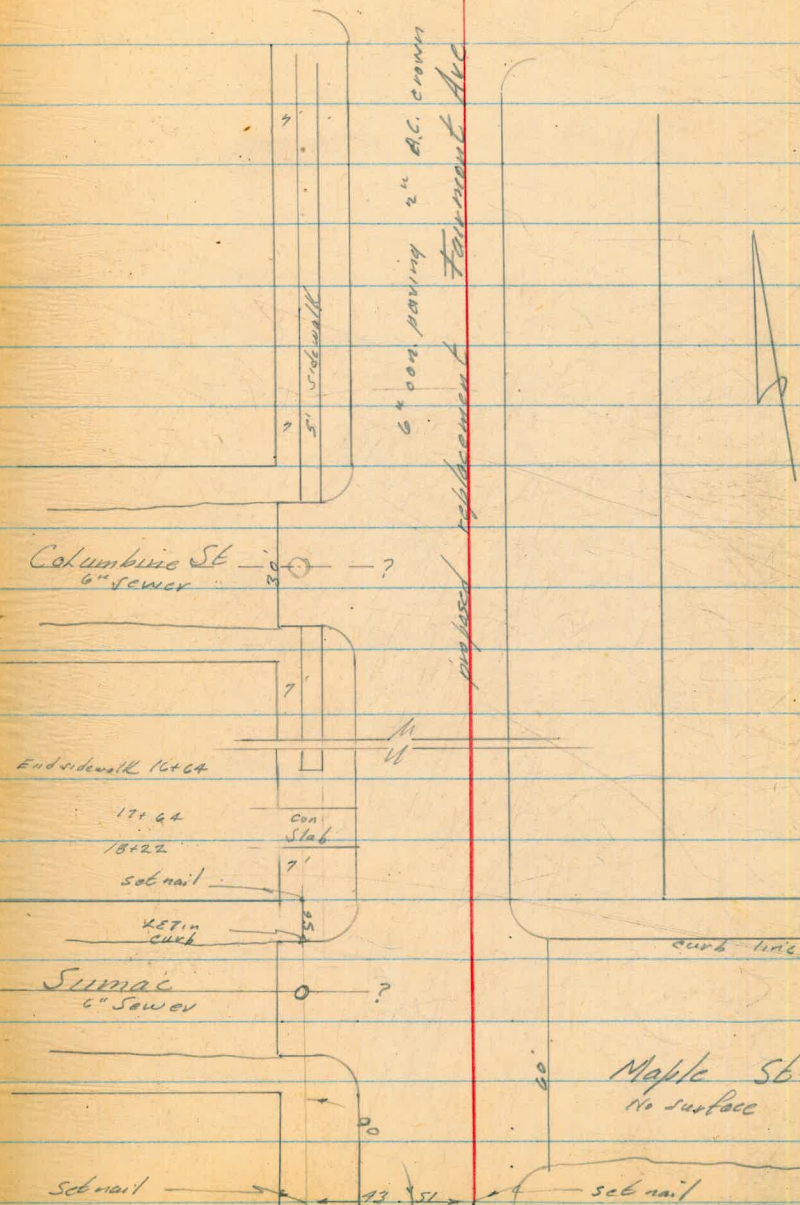 6" con. paving 2" A.C. crown
proposed replacement Fairmont Ave
7'
5' sidewalk
7'
Columbine St
6" sewer
30'
?
7'
End sidewalk 16+64
17+64
18+22
Con
Slab
7'
set nail
curb
curb line
Sumac
6" Sewer
?
60'
Maple St
No surface
set nail
43
51
set nail